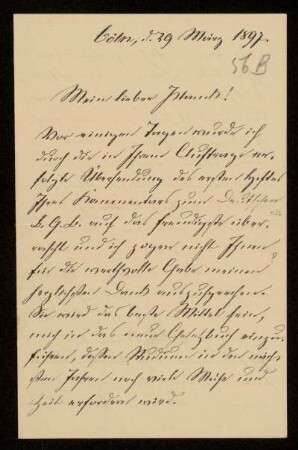 Cöln, d. 29 März 1897.
56 B
Mein lieber Planck!
Vor einigen Tagen wurde ich
durch die in Ihrem Auftrage er-
folgte Übersendung des ersten Heftes
Ihres Kommentars zum
B.G.B. auf das freudigste über-
rascht und ich zögere nicht Ihnen
für die werthvolle Gabe meinen
herzlichsten Dank auszusprechen.
Sie wird das beste Mittel sein,
mich in das neue Gesetzbuch einzu-
führen, dessen Studium in den näch-
sten Jahren noch viele Mühe und
Zeit erfordern wird.